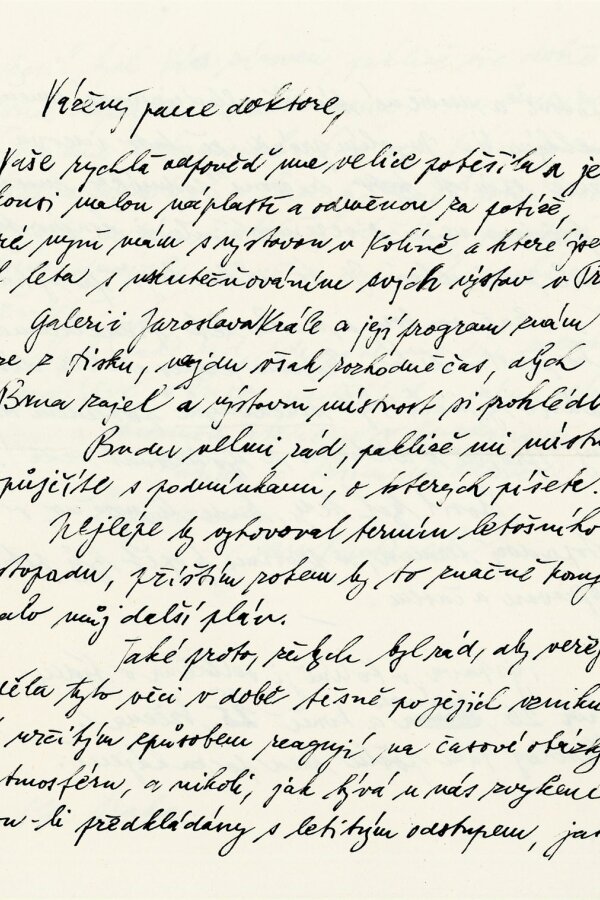 Vážený pane doktore,
Vaše rychlá odpověď mne velice potěšila a je
malou náplastí a odměnou za potíže,
nyní mám s výstavou v Kolíně a které jse
léta s uskutečňováním svých výstav v Pr
Galerii Jaroslava Krále a její program znám
ze z tisku, najdu však rozhodně čas, abych
Brna zajel a výstavní místnost si prohlédl
Budu velmi rád, pakliže mi místn
půjčíte s podmínkami, o kterých píšete.
Nejlépe by vyhovoval termín letošního
stopadu, příštím rokem by to značně komp
alo můj další plán.
Také proto, že bych byl rád, aby veřej
děla tyto věci v době těsně po jejich vzniku
určitým způsobem reagují na časové otázky
tmosféru, a nikoli, jak bývá u nás zvykem
ou-li předkládány s letitým odstupem, jak